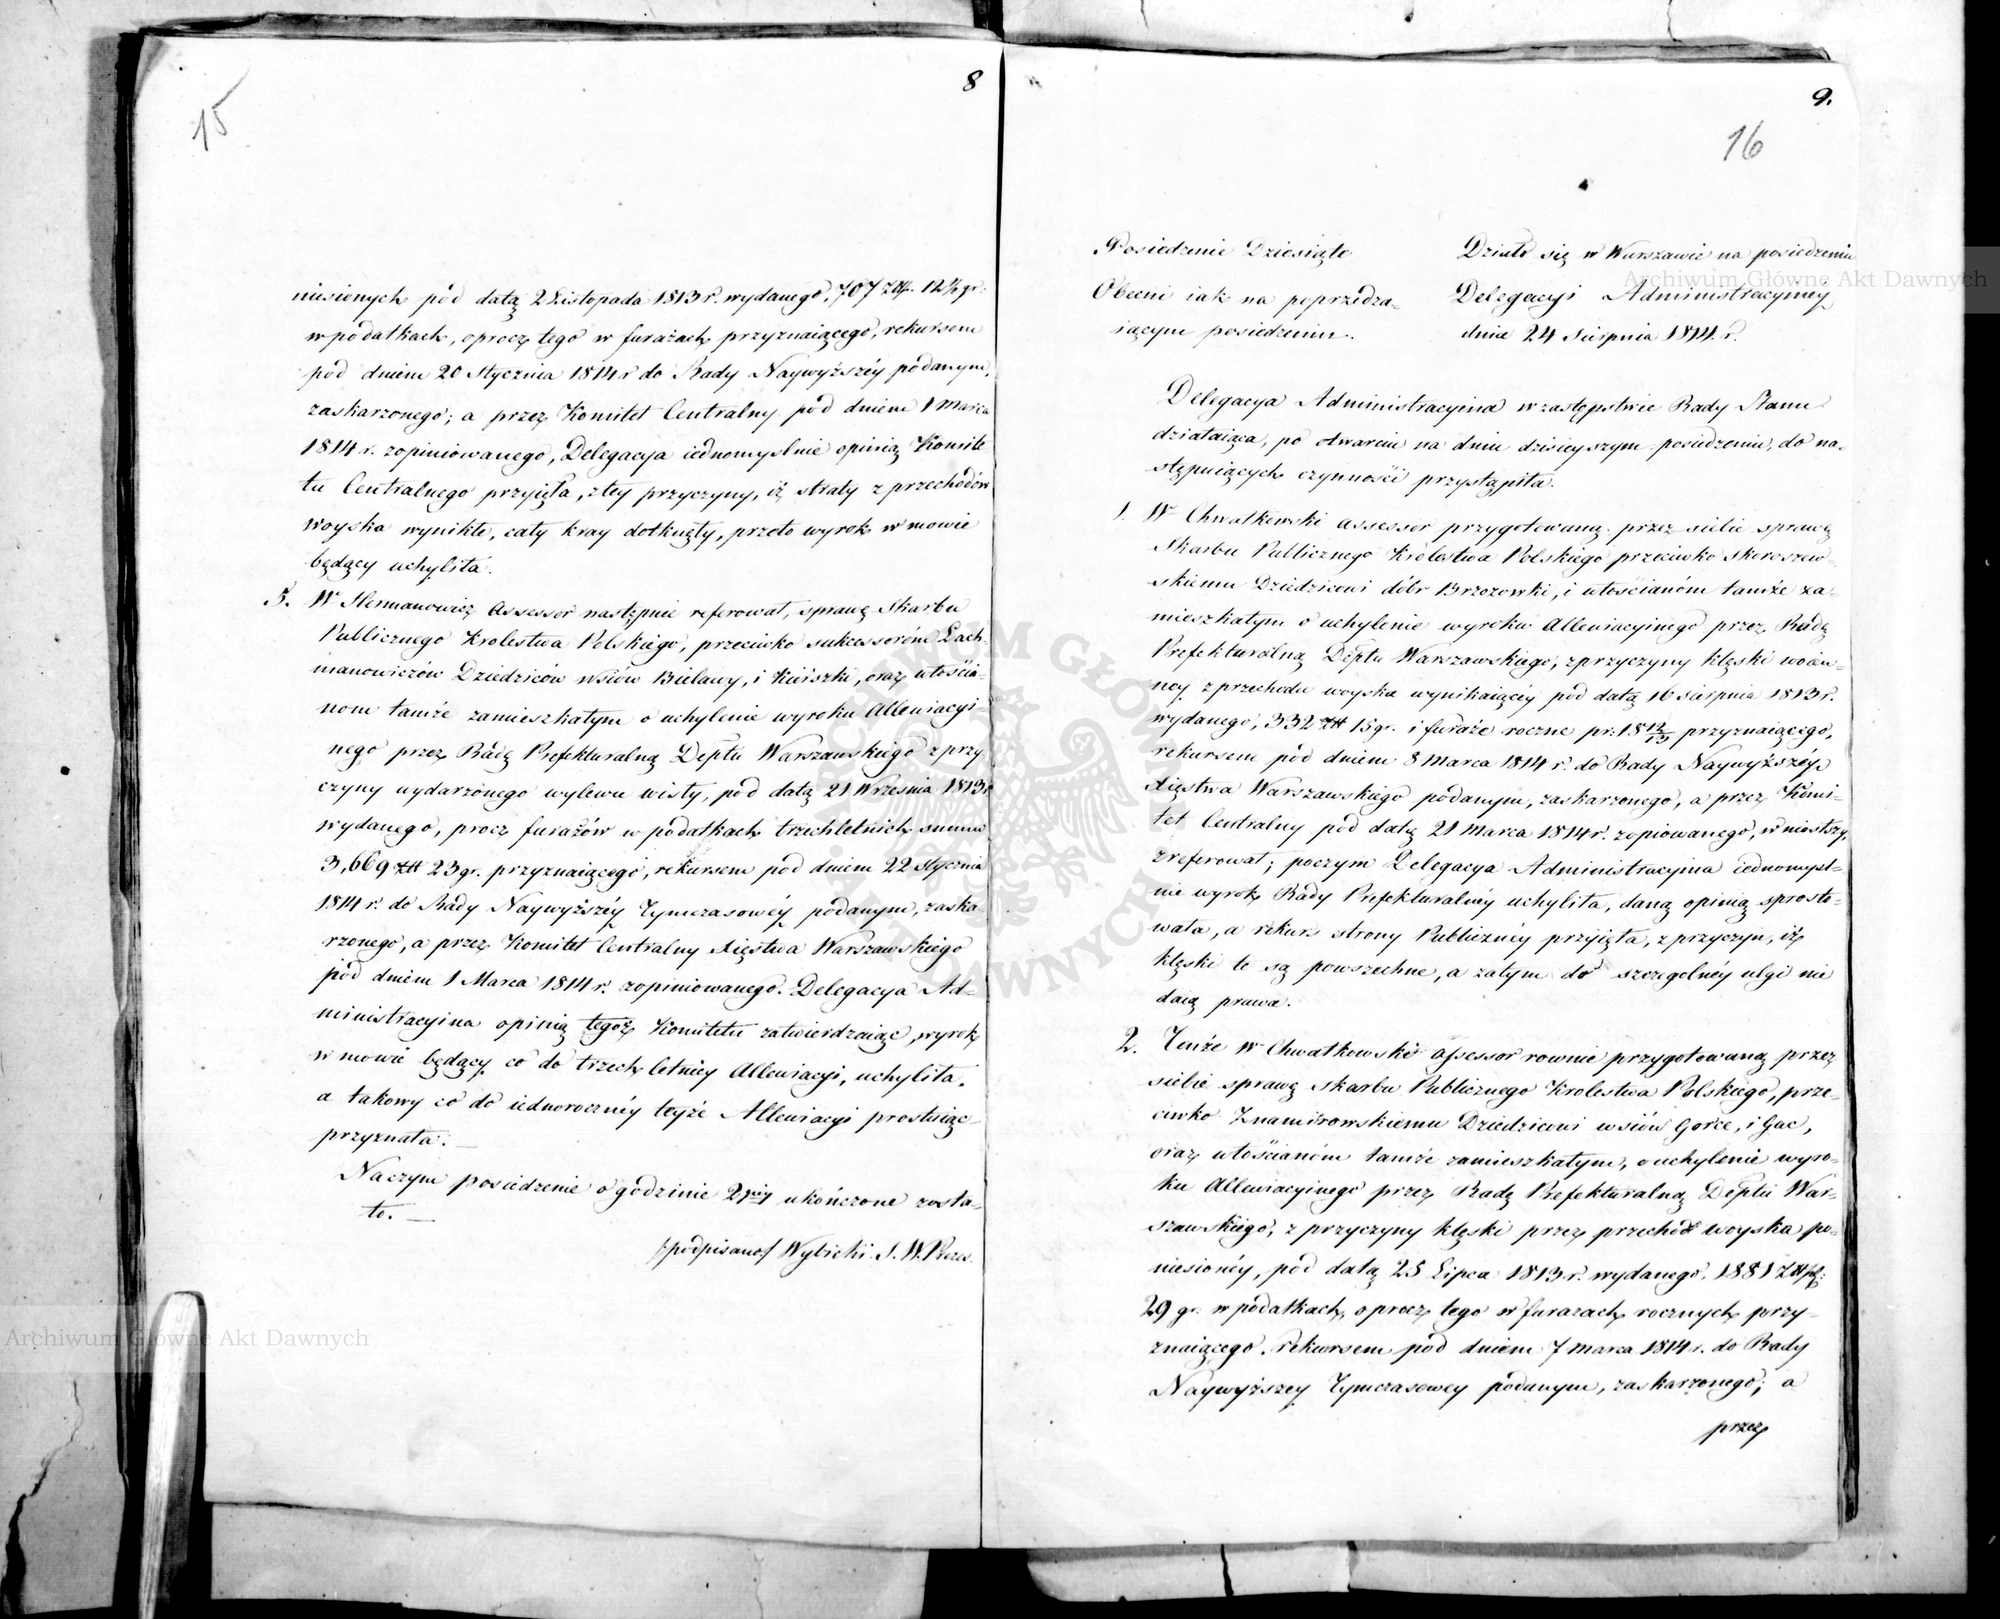 15
8
niesionych pod datą 2 Listopada 1813 r. wydanego, 707 złp. 12⅔ gr.
w podatkach, oprocz tego w furażach przyznaiącego, rekursem
pod dniem 20 Stycznia 1814 r do Rady Naywyższéy podanym,
zaskarzonego; a przez Komitet Centralny pod dniem 1 Marca
1814 r. zopiniowanego, Delegacya iednomyslnie opinią Komite
tu Centralnego przyięła, z tey przyczyny, iż straty z przechodów
woyska wynikłe, cały kray dotknęły, przeto wyrok w mowie
będący uchyliła.
5. W Hermanowicz Assessor następnie referował, sprawę Skarbu
Publicznego Krolestwa Polskiego, przeciwko sukcessoróm Lach
manowiczów Dziedziców wsiów Bielawy, i Kiiszki, oraz włościa-
nom tamże zamieszkałym o uchylenie wyroku Allewiacyi
nego przez Radę Prefekturalną Deptu Warszawskiego z przy
czyny wydarzonego wylewu wisły, pod datą 21 Września 1813 r
wydanego, procz furażów w podatkach trzechletnich summę
3,669 złł 23 gr. przyznaiącego, rekursem pod dniem 22 Stycznia
1814 r. do Rady Naywyższéy Tymczasowéy podanym, zaska-
rzonego, a przez Komitet Centralny Xięstwa Warszawskiego
pod dniem 1 Marca 1814 r. zopiniowanego. Delegacya Ad-
ministracyina opinią tegoż Komitetu zatwierdzaiąc, wyrok
w mowie będący co do trzech letniey Allewiacyi, uchyliła,
a takowy co do iednoroczney teyże Allewiacyi prostuiąc
przyznała. —
Naczym posiedzenie o godzinie 2giey ukończone zosta-
ło. —
/podpisano/ Wybicki S. W. Prezes.
9.
16
Posiedzenie Dziesiąte
Obecni iak na poprzedza-
iącym posiedzeniu.
Działo się w Warszawie na posiedzeniu
Delegacyi Administracyiney
dnia 24 Sierpnia 1814. r.
Delegacya Administracyina w zastępstwie Rady Stanu
działaiąca, po otwarciu na dniu dzisieyszym posiedzenia, do na-
stępuiących czynności przystąpiła.
1. W Chwatkowski assessor przygotowaną przez siebie sprawę
Skarbu Publicznego Królestwa Polskiego przeciwko Skoroszew-
skiemu Dziedzicowi dóbr Brzozowki, i włościanóm tamże za-
mieszkałym o uchylenie wyroku Allewiacyinego przez Radę
Prefekturalną Deptu Warszawskiego, z przyczyny klęski woien-
ney z przechodu woyska wynikaiącéy pod datą 16 Sierpnia 1813 r.
wydanego, 332 złł 15 gr. i furaże roczne pr: 18 12/13 przyznaiącego,
rekursem pod dniem 8 Marca 1814 r. do Rady Naywyższéy
Xięstwa Warszawskiego podanym, zaskarzonego, a przez Komi-
tet Centralny pod datą 21 Marca 1814 r. zopiowanego, w nieotszy,
zreferował; poczym Delegacya Administracyina iednomysl-
nie wyrok Rady Prefekturalnéy uchyliła, daną opinią sprosto-
wała, a rekurs strony Publicznéy przyięła, z przyczyn, iż
klęski te są powszechne, a zatym do szczególnéy ulgi nie
daią prawa.
2. Tenże W Chwatkowski assessor rownie przygotowaną przez
siebie sprawę Skarbu Publicznego Krolestwa Polskiego, prze-
ciwko Znamirowskiemu Dziedzicowi wsiów Gorce, i Gac,
oraz włościanóm tamże zamieszkałym, o uchylenie wyro-
ku Allewiacyinego przez Radę Prefekturalną Deptu War-
szawskiego, z przyczyny klęski przez przechód woyska po-
niesionéy, pod datą 25 Lipca 1813. r. wydanego, 1881 złłpl:
29 gr. w podatkach, oprocz tego w furazach rocznych przy-
znaiącego, rekursem pod dniem 7 Marca 1814 r. do Rady
Naywyższey Tymczasowey podanym, zaskarzonego; a
przez
Archiwum Główne Akt Dawnych
Archiwum Główne Akt Dawnych
ARCHIWUM GŁÓWNE AKT DAWNYCH